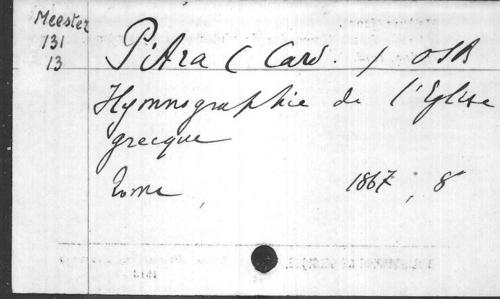 Meester
131
13
Pitra (Card.) OSB
Hymnographie de l'Eglise
grecque
Rome, 1867, 8°